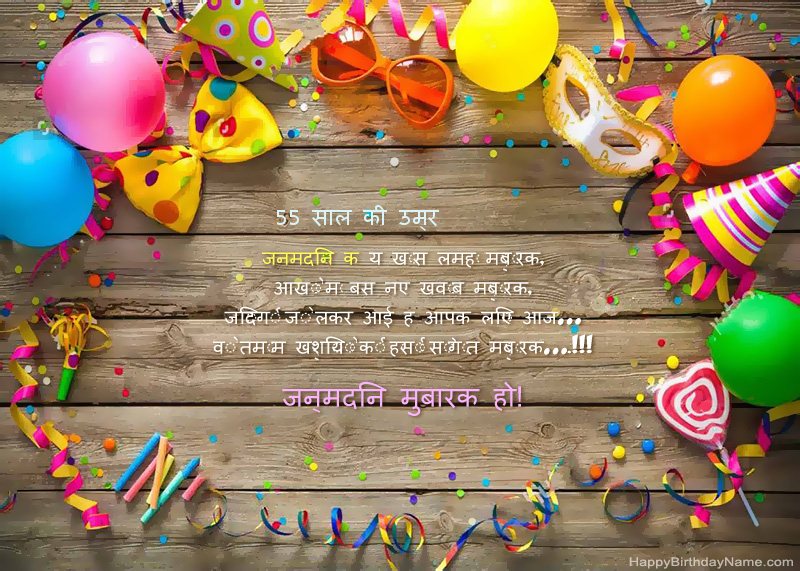 55 साल की उम्र
जनमदनि क य खास लमहा मबारक,
आखों मे बस नए खवाब मबारक,
जदिगी जो लकर आई ह आपक लएि आज...
वो तमाम खशयिों की हसीं सौगात मबारक...!!!
जन्मदनि मुबारक हो!
HappyBirthdayName.com